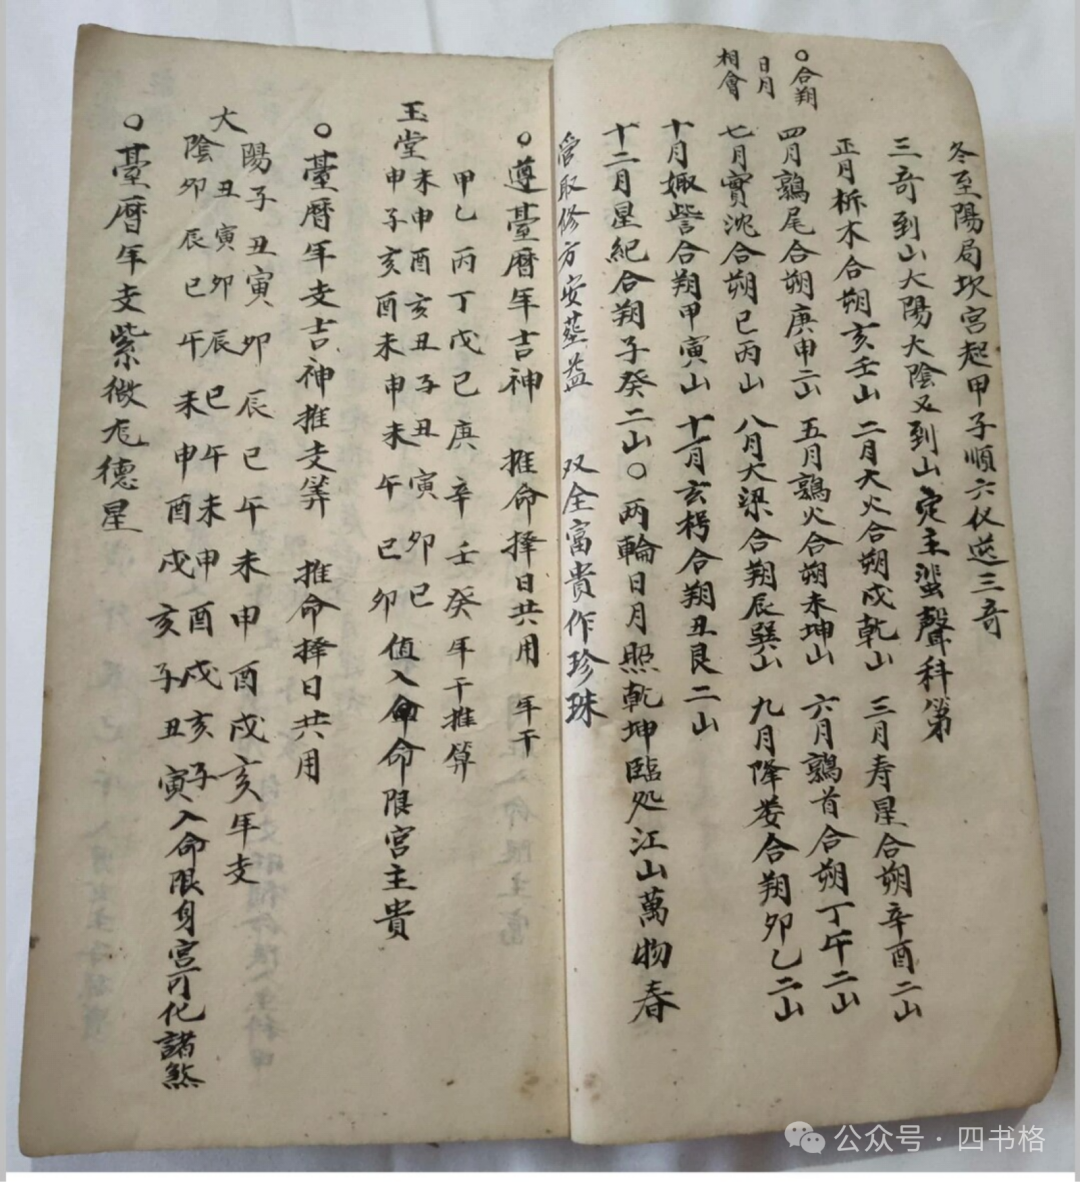 冬至陽局坎宮起甲子順六仪逆三奇
三奇到山太陽太陰又到山定主蜚聲科第
正月析木合朔亥壬山 二月大火合朔戌乾山 三月寿星合朔辛酉二山
四月鶉尾合朔庚申二山 五月鶉火合朔未坤山 六月鶉首合朔丁午二山
七月實沈合朔巳丙山 八月大梁合朔辰巽山 九月降娄合朔卯乙二山
十月娵訾合朔甲寅山 十一月玄枵合朔丑艮二山
十二月星紀合朔子癸二山〇两輪日月照乾坤臨処江山萬物春
管取修方安塟益 双全富貴作珍珠
〇合朔
日月
相會
〇遵臺曆年吉神 推命择日共用 年干
甲乙丙丁戊己庚辛壬癸年干推算
玉堂
未申酉亥丑子丑寅卯巳
申子亥酉未申未午巳卯
值入命命限宮主貴
〇臺曆年支吉神推支筭 推命择日共用
太陽子丑寅卯辰巳午未申酉戌亥年支
丑寅卯辰巳午未申酉戌亥子
太陰卯辰巳午未申酉戌亥子丑寅入命限身宮可化諸煞
〇臺曆年支紫微龙德星
公众号·四书格